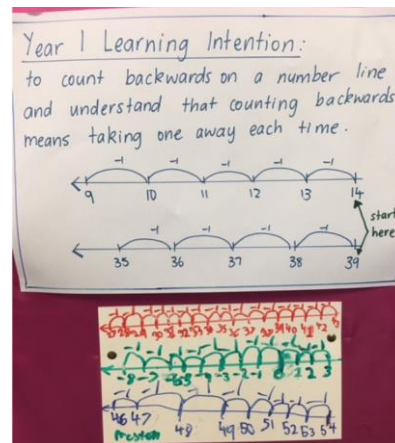 Year 1 Learning Intention:
to count backwards on a number line
and understand that counting backwards
means taking one away each time.
-1 -1 -1 -1 -1
9 10 11 12 13 14
start
here
-1 -1 -1 -1
35 36 37 38 39
-8 -7 -3 -2 -1 0 1 2 3
46 47 48 49 50 51 52 53 54
Preston